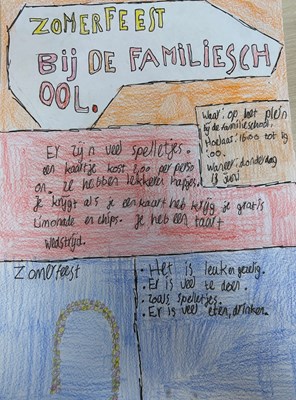 ZOMERFEEST
BIJ DE FAMILIESCH
OOL.
Waar: op het plein
bij de familieschool.
Hoelaat: 16:00 tot 19
:00.
Waneer: donderdag
13 juni
Er zijn veel spelletjes.
een kaartje kost 2,00 per perso
on. ze hebben lekkere hapjes.
Je krijgt als je een kaart heb krijg je gratis
Limonade en chips. Je heb een taart
wedstrijd.
Zomerfeest
• Het is leuk en gezelig.
• Er is veel te doen.
• zoals spelletjes.
• Er is veel eten, drinken.